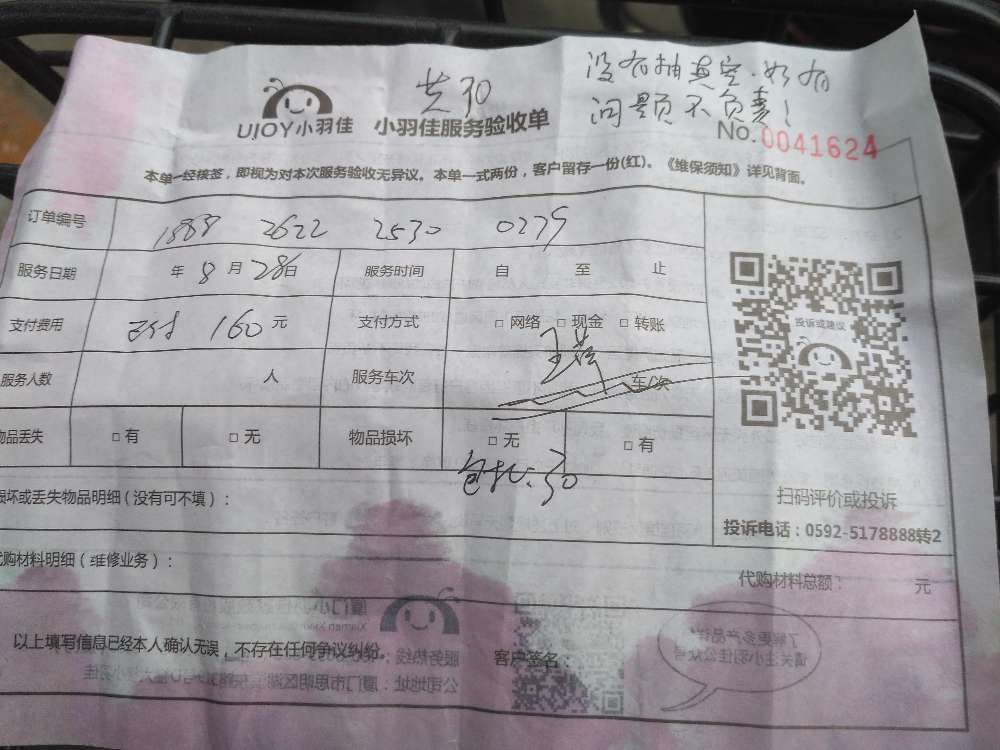 没有抽真空.如有
问题不负责!
共30
UJOY小羽佳 小羽佳服务验收单
No.0041624
本单一经核签，即视为对本次服务验收无异议。本单一式两份，客户留存一份(红)。《维保须知》详见背面。
订单编号 1888 2622 2530 0279
服务日期 年 8 月 28日 服务时间 自 至 止
支付费用 已付 160 元 支付方式 □ 网络 □ 现金 □ 转账
服务人数 人 服务车次 车/次
物品丢失 □ 有 □ 无 物品损坏 □ 无 □ 有
30
投诉或建议
扫码评价或投诉
投诉电话：0592-5178888转2
损坏或丢失物品明细（没有可不填）：
代购材料明细（维修业务）：
代购材料总额： 元
以上填写信息已经本人确认无误，不存在任何争议纠纷。 客户签名：